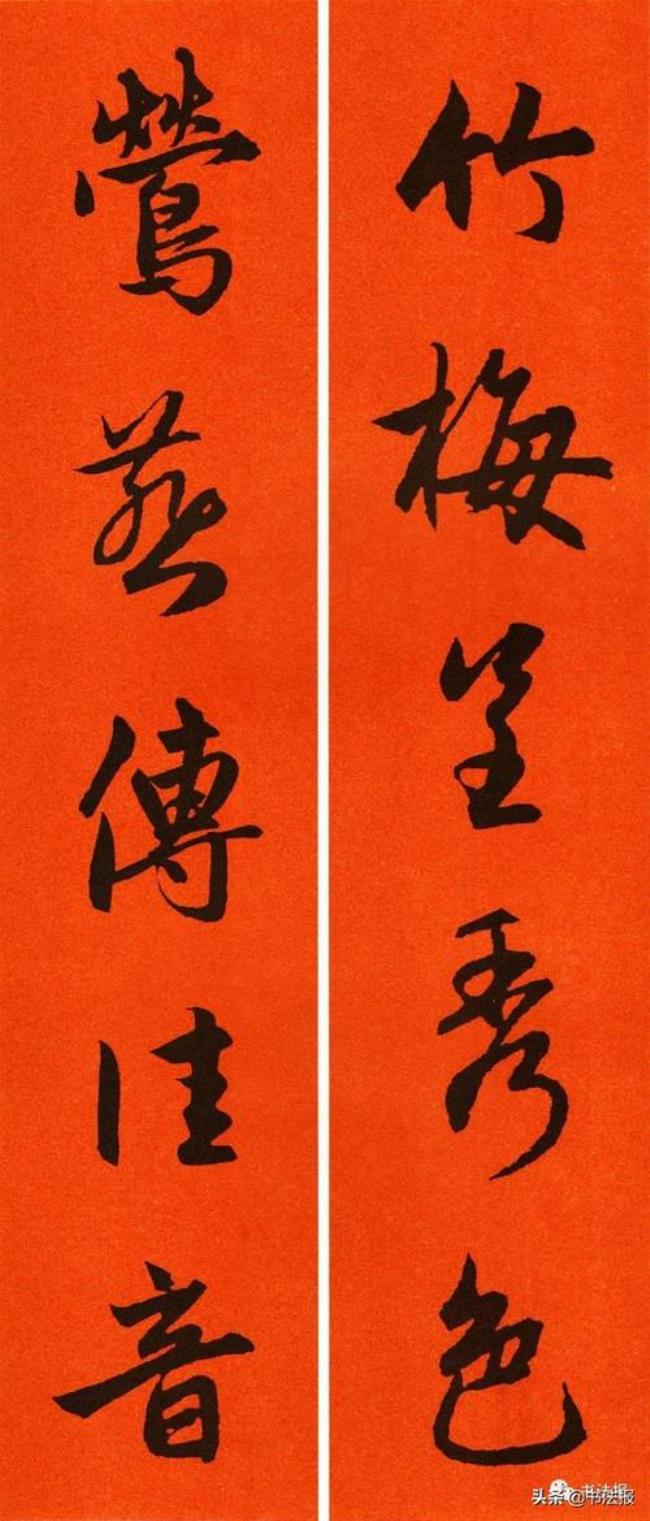 竹梅呈秀色
鶯燕傳佳音
书法报
头条@书法报